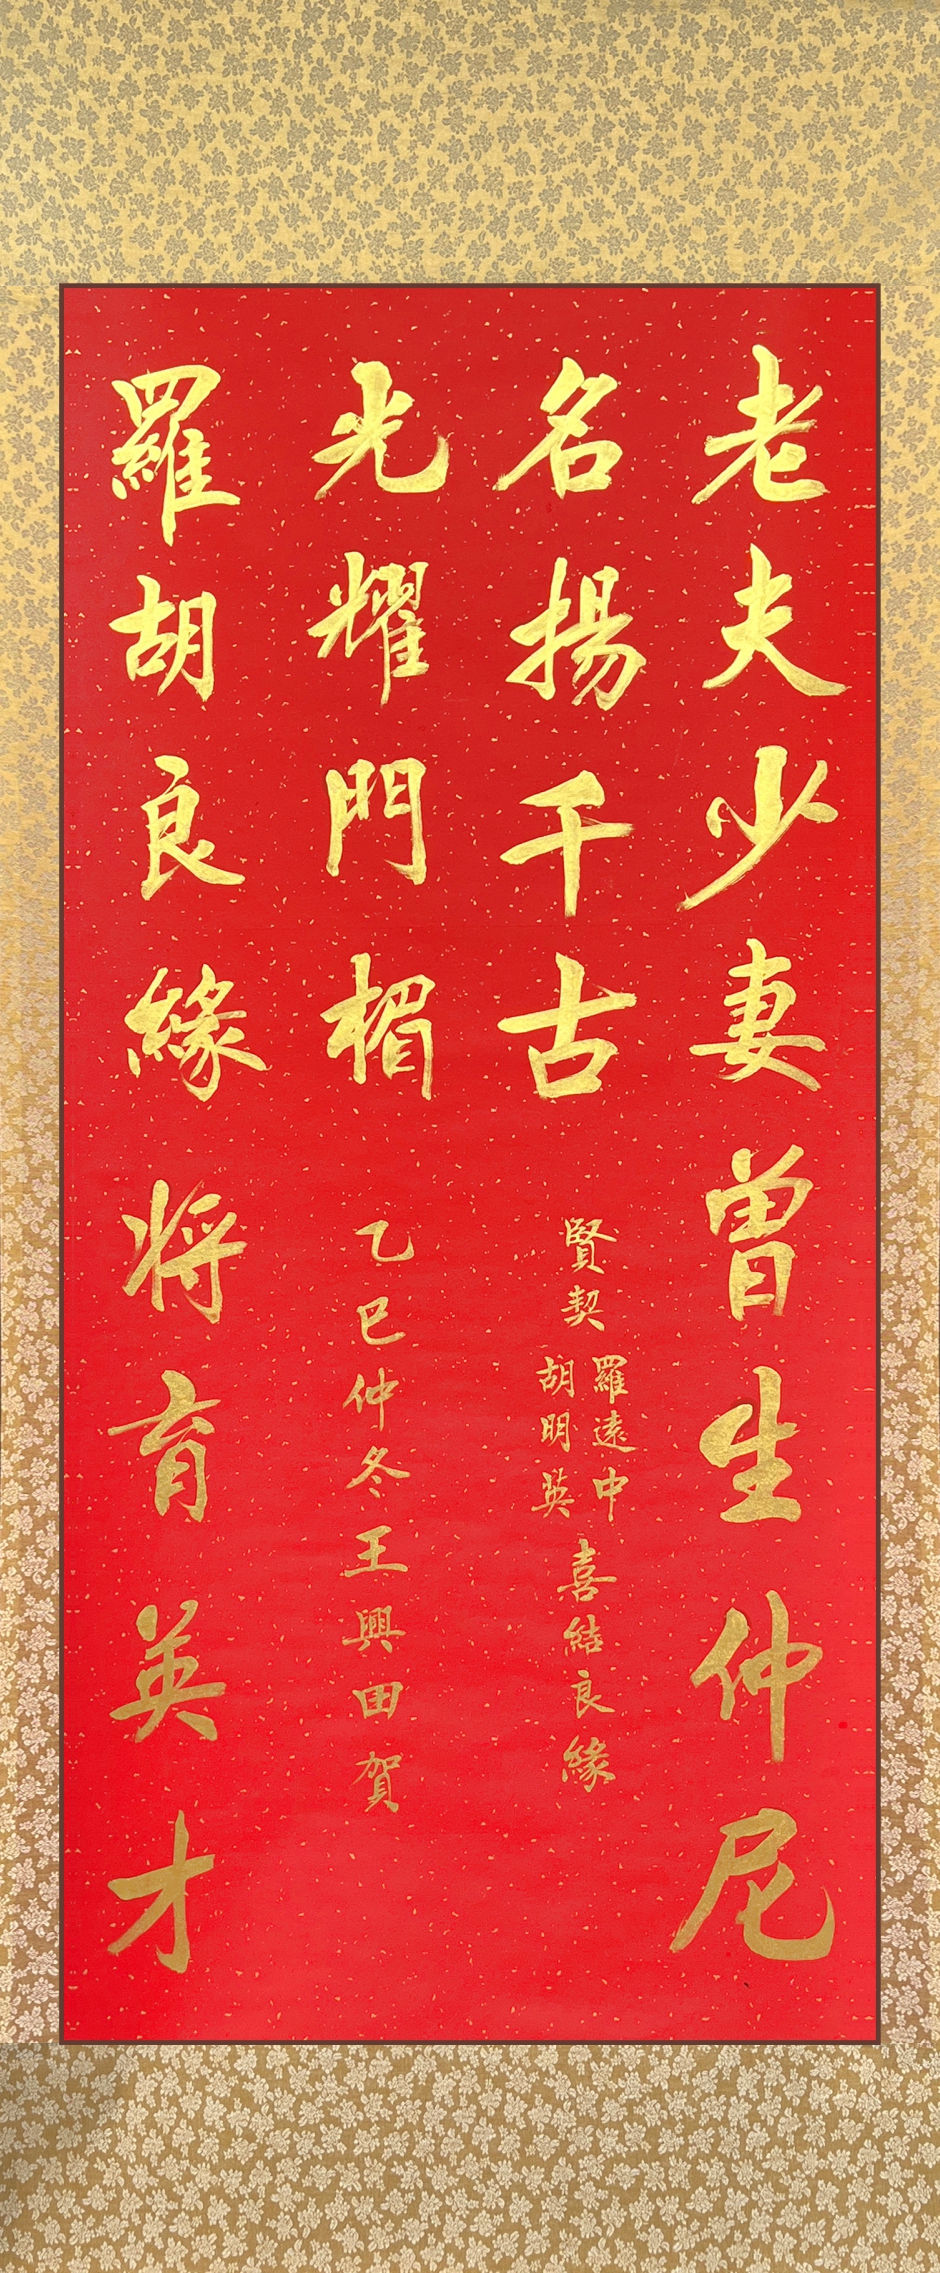 老夫少妻曾生仲尼
名揚千古
賢契
羅遠中
胡明英
喜結良緣
光耀門楣
乙巳仲冬王興田賀
羅胡良緣將育英才